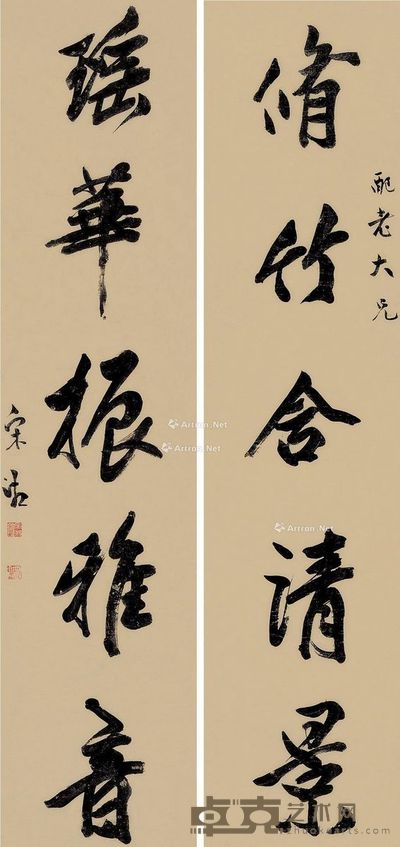 配老大兄
脩竹含清景
瑶華振雅音
宋湘
Artron.Net
Artron.Net
Artron.Net
卓克艺术网